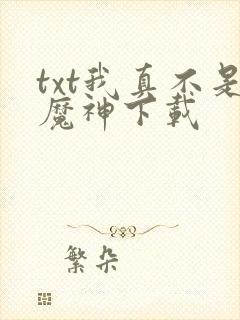 txt我真不是
魔神下载
繁朵